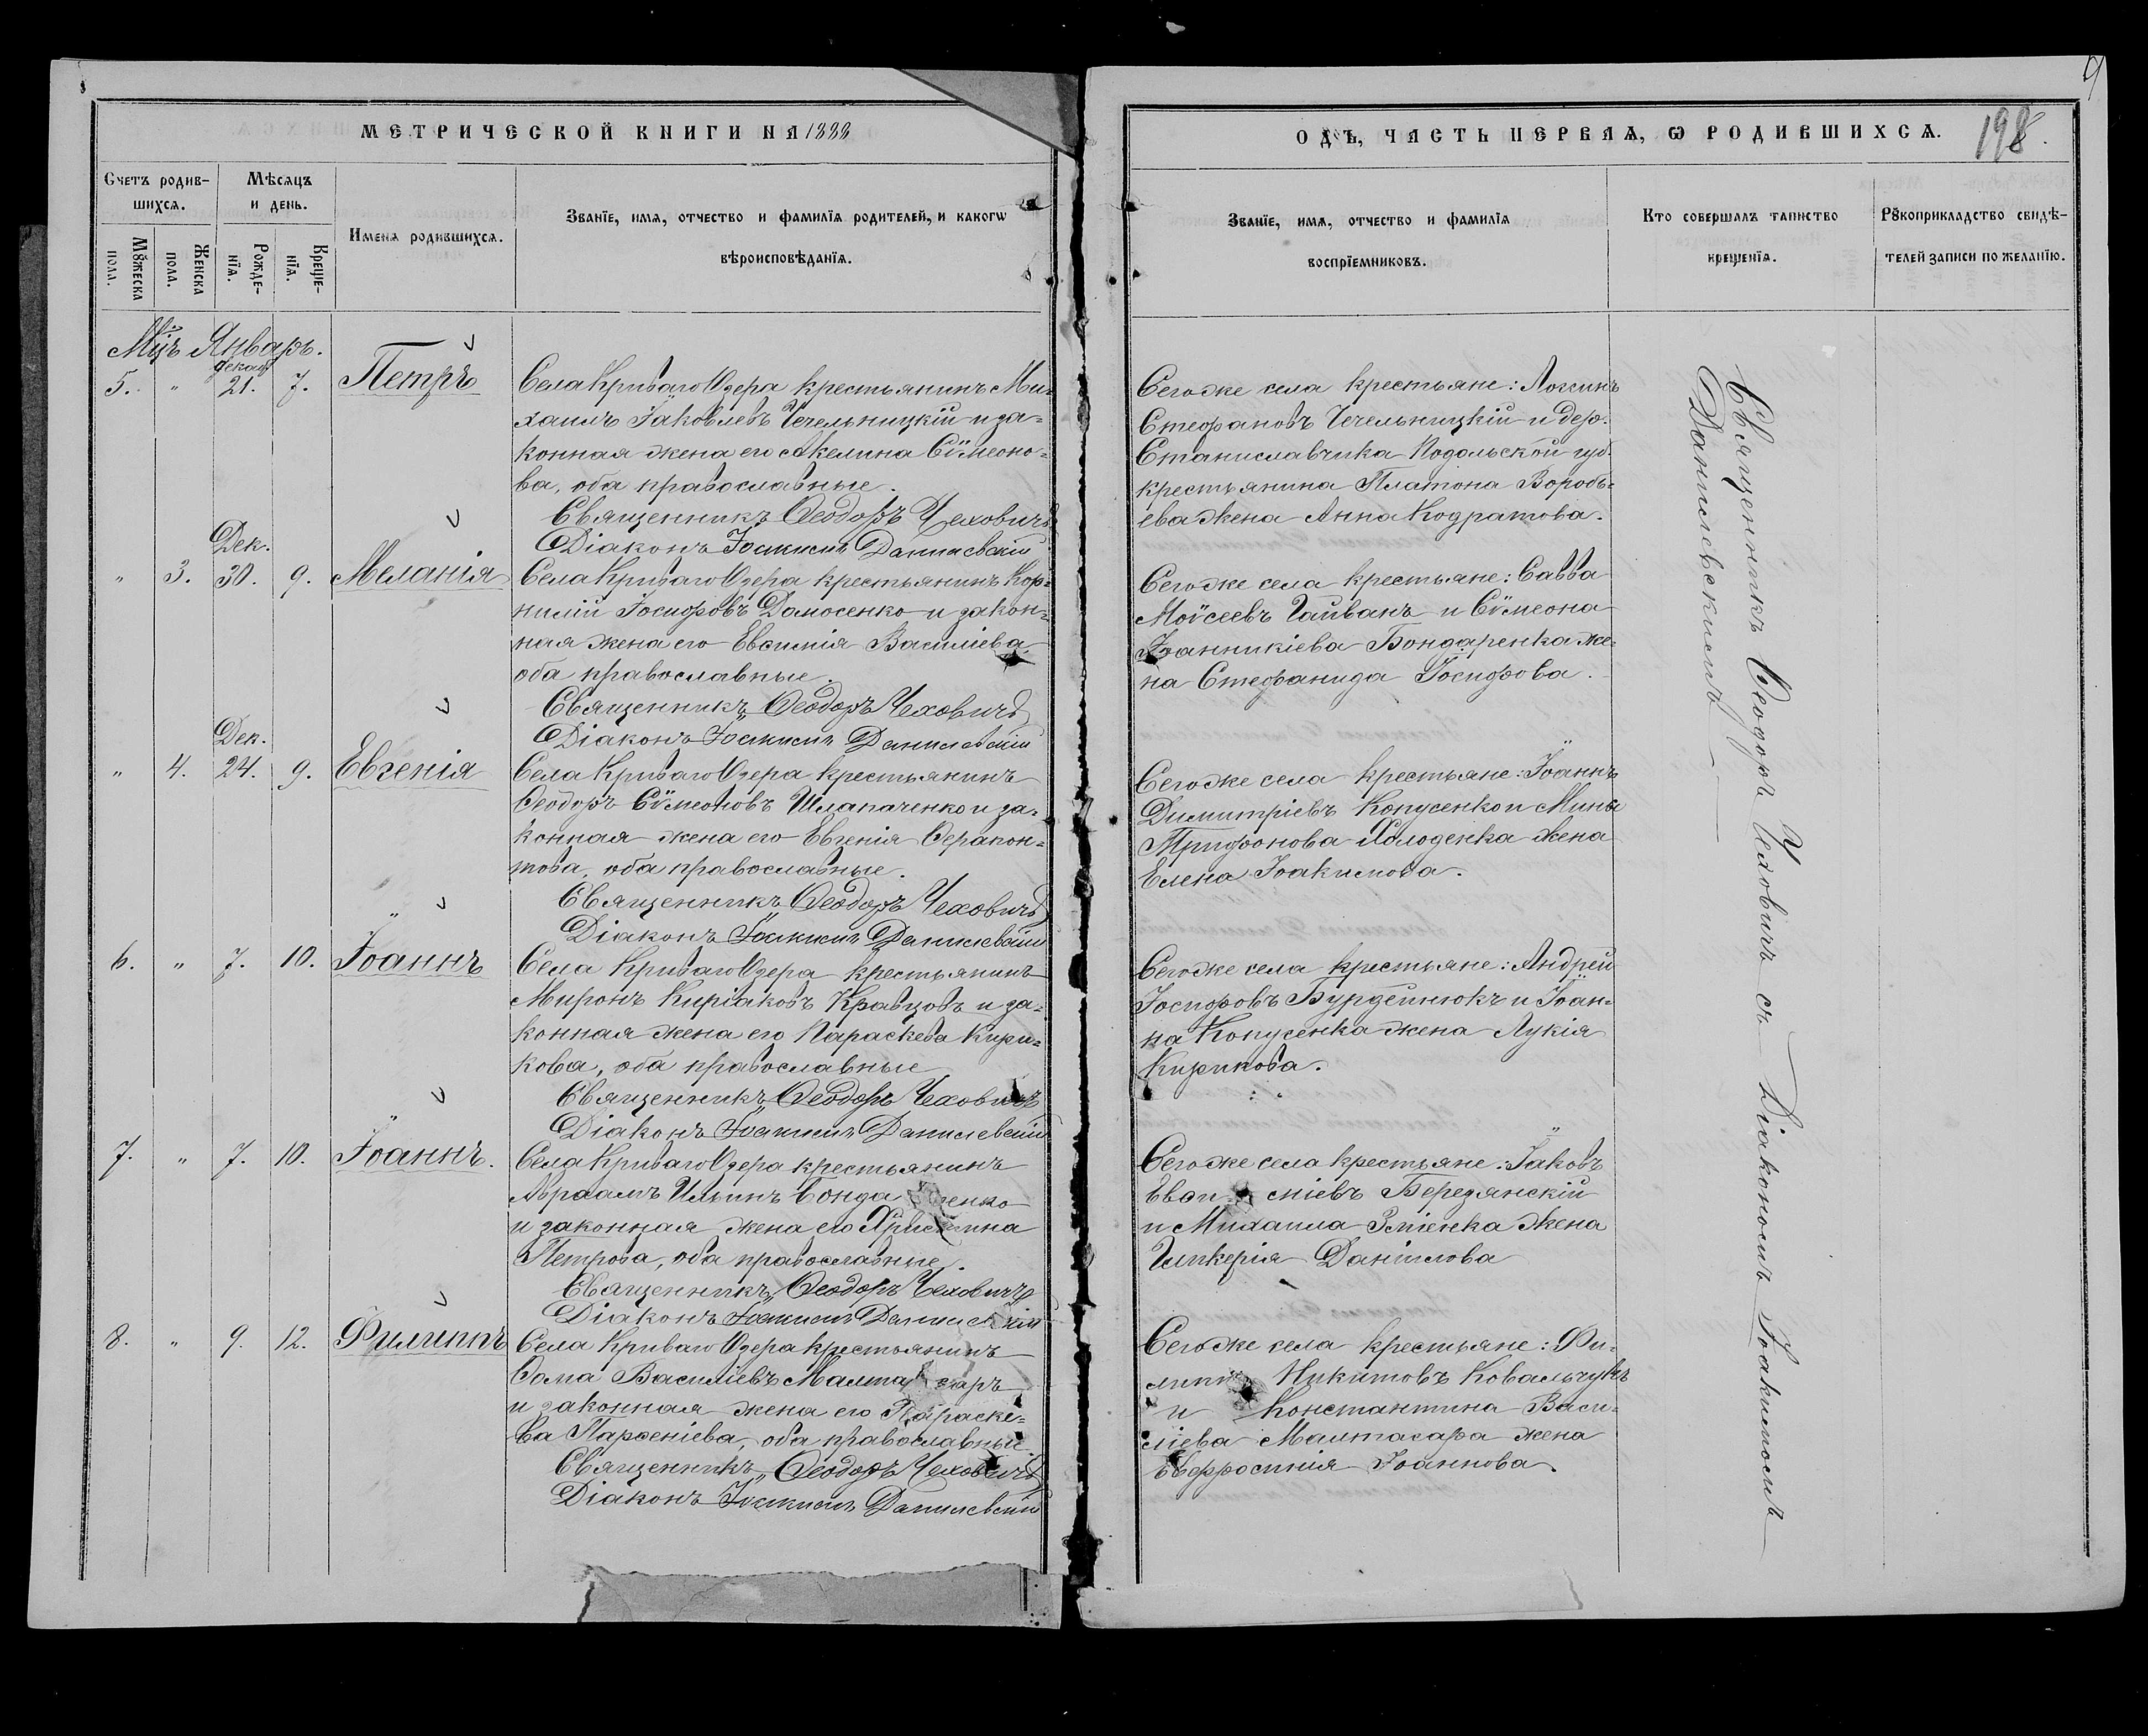 МЕТРИЧЕСКОЙ КНИГИ НА 1888
Счетъ родив-
шихся.
Мѣсяцъ
и день.
Мꙋжеска
пола.
Женска
пола.
Рожде-
нїя.
Креще-
нїя.
Имена родившихся.
Званїе, имя, отчество и фамилїя родителей, и какогѡ
вѣроисповѣданїя.
Мц̃ъ Январь.
5. " декаб. 21. 7. Петръ
Села Криваго Озера крестьянинъ Ми-
хаилъ Іаковлевъ Чечельницкій и за-
конная жена его Акелина Сѵмеоно-
ва, оба православные.
Священникъ Ѳеодоръ Чеховичъ
Діаконъ Іоакимъ Данилевскій
" 3. Дек. 30. 9. Меланія
Села Криваго Озера крестьянинъ Кор-
нилій Іосифовъ Дамосенко и закон-
ная жена его Евѳимія Василіева,
оба православные.
Священникъ Ѳеодоръ Чеховичъ
Діаконъ Іоакимъ Данилевскій
" 4. Дек. 24. 9. Евгенія
Села Криваго Озера крестьянинъ
Ѳеодоръ Сѵмеоновъ Шлапаченко и за-
конная жена его Евгенія Ѳерапон-
това, оба православные.
Священникъ Ѳеодоръ Чеховичъ
Діаконъ Іоакимъ Данилевскій
6. " 7. 10. Іоаннъ
Села Криваго Озера крестьянинъ
Миронъ Киріаковъ Кравцовъ и за-
конная жена его Параскева Кири-
кова, оба православные
Священникъ Ѳеодоръ Чеховичъ
Діаконъ Іоакимъ Данилевскій
7. " 7. 10. Іоаннъ.
Села Криваго Озера крестьянинъ
Авраамъ Ильинъ Бонда енко
и законная жена его Христина
Петрова, оба православные.
Священникъ Ѳеодоръ Чеховичъ
Діаконъ Іоакимъ Данилевскій
8. " 9. 12. Филиппъ
Села Криваго Озера крестьянинъ
Ѳома Василіевъ Малта саръ
и законная жена его Параске-
ва Парѳеніева, оба православные
Священникъ Ѳеодоръ Чеховичъ
Діаконъ Іоакимъ Данилевскій
ОДЪ, ЧАСТЬ ПЕРВАЯ, Ѡ РОДИВШИХСЯ.
198.
9
Званїе, имя, отчество и фамилїя
воспрїемниковъ.
Кто совершалъ таинство
крещенїя.
Рꙋкоприкладство свидѣ-
телей записи по желанїю.
Сегоже села крестьяне: Логинъ
Стефановъ Чечельницкій и дер.
Станиславчика Подольской губ.
крестьянина Платона Воробь-
ева жена Анна Кодратова.
Сегоже села крестьяне: Савва
Моѵсеевъ Гайванъ и Сѵмеона
Іоанникіева Бондаренка же-
на Стефанида Іосифова.
Сегоже села крестьяне: Іоаннъ
Димитріевъ Копусенко и Мины
Трифонова Холоденка жена
Елена Іоакимова.
Сегоже села крестьяне: Андрей
Іосифовъ Бурдейнюкъ и Іоан-
на Копусенка жена Лукія
Кирикова.
Сегоже села крестьяне: Іаковъ
Евѳи міевъ Березянскій
и Михаила Зміенка жена
Гликерія Даніилова
Сегоже села крестьяне: Фи-
липпъ Никитовъ Ковальчукъ
и Константина Васи-
ліева Малтасара жена
Евфросинія Іоаннова.
Священникъ Ѳеодоръ Чеховичъ съ Діакономъ Іоакимомъ
Данилевскимъ